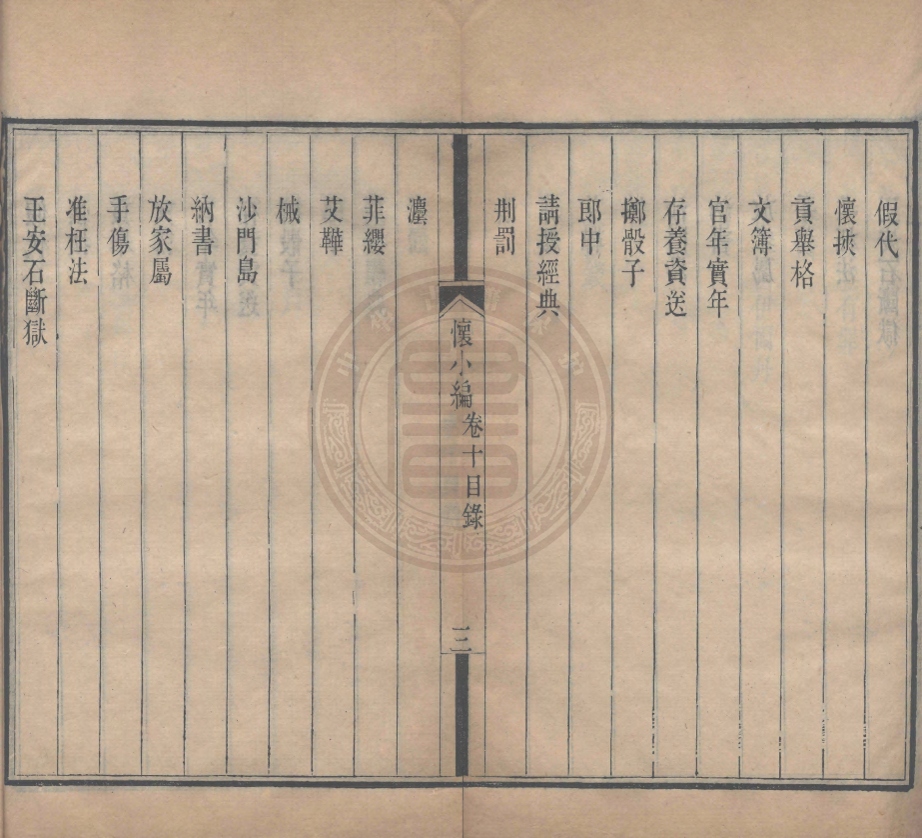 假代
懷挾
貢舉格
文簿
官年實年
存養資送
擲骰子
郎中
請授經典
刑罰
懷小編卷十目錄
三
灋
菲纓
艾鞸
械
沙門島
納書
放家屬
手傷
准枉法
王安石斷獄